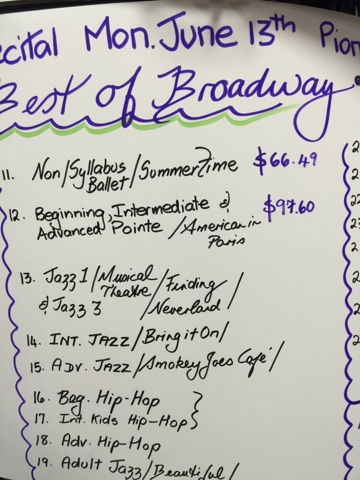 ecital Mon. June 13th Pion
Best of Broadway
11. Non/Syllabus Ballet/Summertime $66.49
12. Beginning, Intermediate & $97.60
Advanced Pointe / American in
Paris
13. Jazz 1/Musical Theatre/Finding
& Jazz 3 Neverland /
14. INT. JAZZ/Bring it On/
15. ADV. JAZZ/Smokey Joes Cafe/
16. Beg. Hip-Hop
17. Int. Kids Hip-Hop
18. Adv. Hip-Hop
19. Adult Jazz/Beautiful/